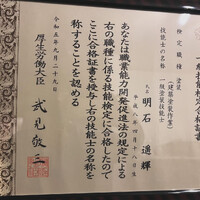 検定職種 塗装
(建築塗装作業)
技能士の名称 一級塗装技能士
明石 遥輝
平成八年四月十八日生
あなたは職業能力開発促進法の規定による
右の職種に係る技能検定に合格したので
ここに合格証書を授与し右の技能士の名称を
称することを認める
令和五年九月二十九日
厚生労働大臣 武見敬三